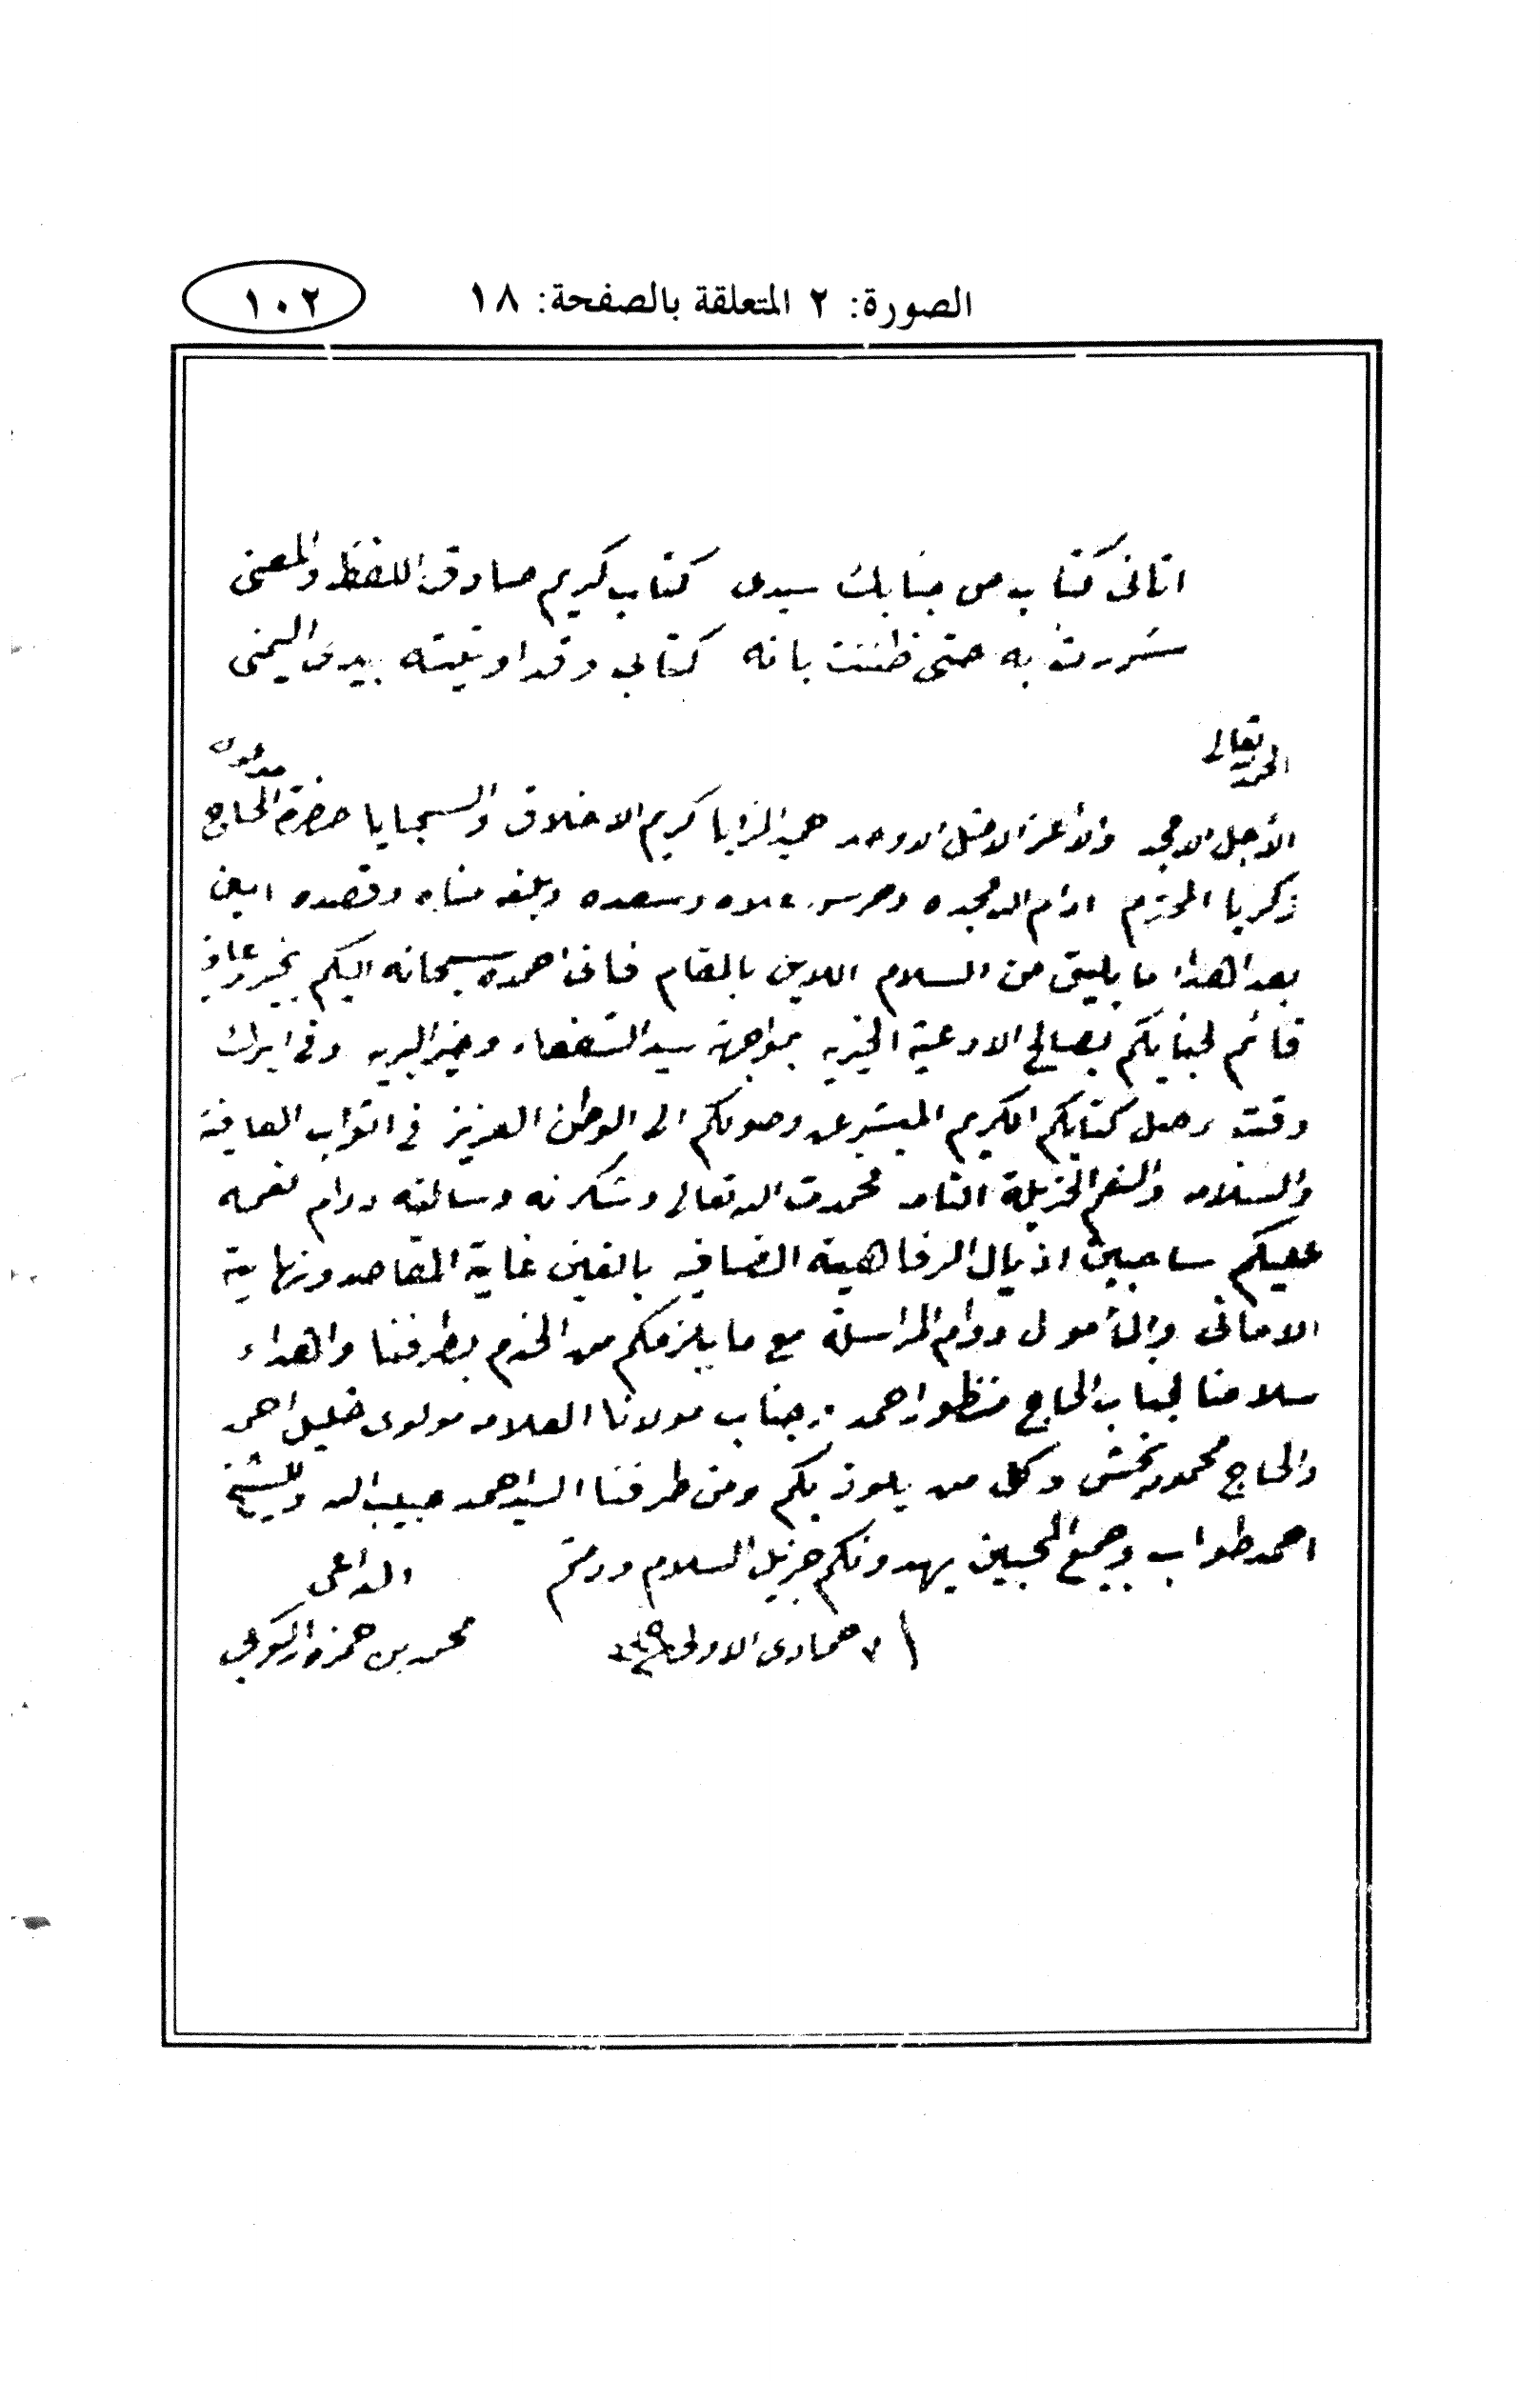 الصورة: ٢ المتعلقة بالصفحة: ١٨
١٠٢
اتانى كتاب من جنابك سيدى كتاب كريم صادق اللفظ والمعنى
سُررت به حتى ظننت بانه كتابى وقد اوتيته بيدى اليمنى
تعالى
الأجل الامجد والأعز الامثل الاوحد حميد المزايا كريم الاخلاق والسجايا حضرة الحاج
زكريا المحترم ادام الله مجده وحرس علاه وسعده وبلغه مناه وقصده امين
بعد اهداء ما يليق من السلام اللايق بالمقام فانى احمده سبحانه اليكم بخير وعافية
قائم لجنابكم بصالح الادعية الخيرية بمواجهة سيد الشفعاء وخير البريه وفى ابرك
وقت وصل كتابكم الكريم المبشر عن وصولكم الى الوطن العزيز فى اثواب العافية
والسلامه والنعم الجزيلة التامه فحمدت الله تعالى وشكرته وسالته دوام نعمه
عليكم ساحبين اذيال الرفاهية الضافيه بالغين غاية المقاصد ونهاية
الامانى والمأمول دوام المراسلة مع ما يلزمكم من الخدم بطرفنا واهداء
سلامنا لجناب الحاج منظور احمد وجناب مولانا العلامه مولوى خليل احمد
والحاج محمود بخش وكل من يلوذ بكم ومن طرفنا السيد احمد حبيب الله والشيخ
احمد طواب وجميع المحبين يهدونكم جزيل السلام ودمتم
الداعى
٧ جمادى الاولى
محمد بن حمزه